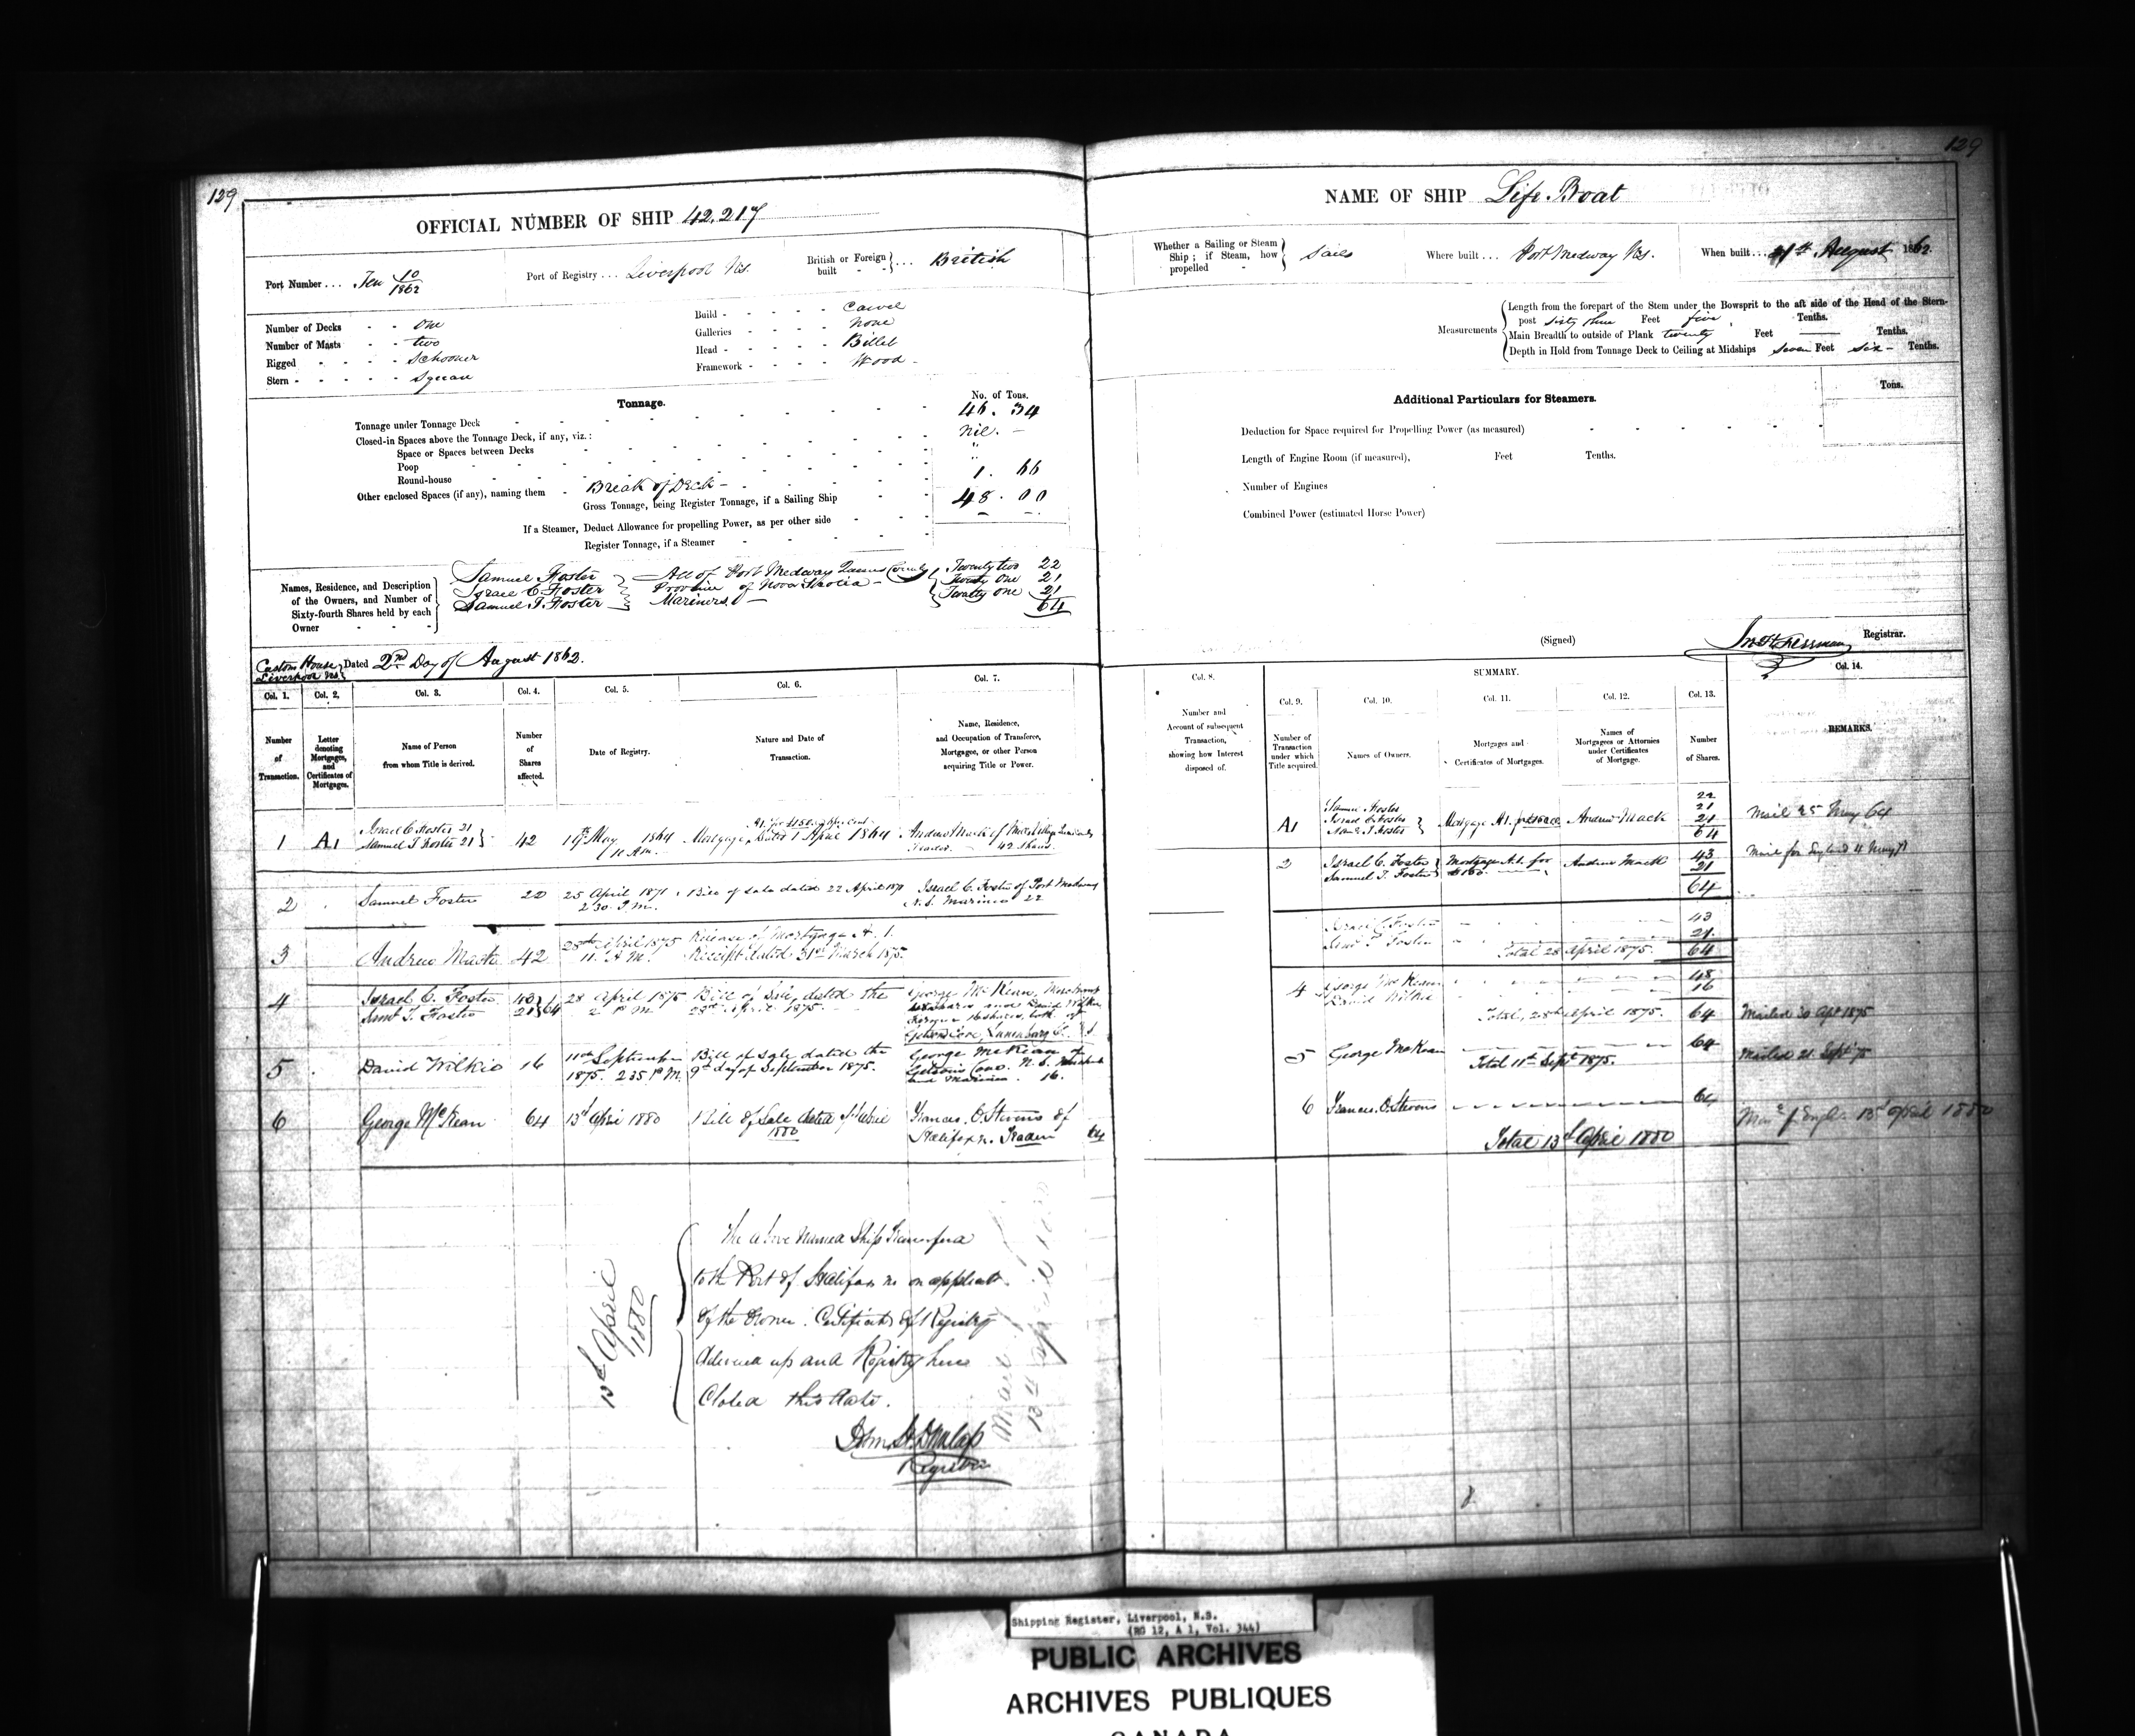 129
OFFICIAL NUMBER OF SHIP 42,217
Port Number ... Ten 10/1862
Port of Registry ... Liverpool Ns.
British or Foreign built - - } ... British
Number of Decks - - One
Number of Masts - - two
Rigged - - - - Schooner
Stern - - - - - Square
Build - - - - - Carvel
Galleries - - - - None
Head - - - - - Billet
Framework - - - - Wood -
Tonnage.
No. of Tons.
Tonnage under Tonnage Deck 46. 34
Closed-in Spaces above the Tonnage Deck, if any, viz.: Nil. -
Space or Spaces between Decks "
Poop "
Round-house
Other enclosed Spaces (if any), naming them - Break of Deck - 1. 66
Gross Tonnage, being Register Tonnage, if a Sailing Ship 48. 00
If a Steamer, Deduct Allowance for propelling Power, as per other side
Register Tonnage, if a Steamer
Names, Residence, and Description of the Owners, and Number of Sixty-fourth Shares held by each Owner
Samuel Foster } All of Port Medway Queens County { Twenty two 22
Israel C. Foster } Province of Nova Scotia - { Twenty One 21
Samuel T. Foster } Mariners - { Twenty one 21
64
Custom House Liverpool Ns. } Dated 2nd Day of August 1862.
Col. 1. Col. 2. Col. 3. Col. 4. Col. 5. Col. 6. Col. 7.
Number of Transaction.
Letter denoting Mortgages, and Certificates of Mortgages.
Name of Person from whom Title is derived.
Number of Shares affected.
Date of Registry.
Nature and Date of Transaction.
Name, Residence, and Occupation of Transferee, Mortgagee, or other Person acquiring Title or Power.
1 A1 Israel C Foster 21
Samuel T Foster 21 } 42 May 1864
11 A.m. Mortgage dated 1 April 1864 Andrew Mack of
Trader. 42 shares
2 Samuel Foster 22 25 April 1871
2.30 P.M. Bill of Sale dated 22 April Israel C. Foster of Port Medway
N.S. Mariner 22
3 Andrew Mack 42 28th April 1875
11. A.M. Release of Mortgage A. 1.
Receipt dated 31st March 1875.
4 Israel C. Foster 43
Saml T. Foster 21 } 64 28 April 1875
2 P.M. Bill of Sale, dated the
28th April 1875. George McKean, Merchant
16 shares, both of
Lunenburg Co. N.S.
5 David Wilkie 16 11th September
1875. 2.35 P.M. Bill of Sale dated the
9th day of September 1875. George McKean of
N.S.
and Mariner. 16.
6 George McKean 64 13th April 1880 Bill of Sale dated April
1880 Francis. O. Stevens of
Halifax n. Trader 64
13th April 1880
The above Named Ship Transferred
to the Port of Halifax ns on applicat.
of the Owner. Certificate of Registry
delivered up and Registry here
Closed this date.
John H. Dunlap
Registrar
13th April 1880
129
NAME OF SHIP Life Boat
Whether a Sailing or Steam Ship; if Steam, how propelled } Sails
Where built ... Port Medway Ns.
When built ... August 1862.
Measurements
Length from the forepart of the Stem under the Bowsprit to the aft side of the Head of the Stern-
post sixty three Feet five Tenths.
Main Breadth to outside of Plank twenty Feet — Tenths.
Depth in Hold from Tonnage Deck to Ceiling at Midships seven Feet six - Tenths.
Additional Particulars for Steamers.
Tons.
Deduction for Space required for Propelling Power (as measured)
Length of Engine Room (if measured), Feet Tenths.
Number of Engines
Combined Power (estimated Horse Power)
(Signed) Registrar.
Col. 8. SUMMARY. Col. 14.
Col. 9. Col. 10. Col. 11. Col. 12. Col. 13.
Number and Account of subsequent Transaction, showing how Interest disposed of.
Number of Transaction under which Title acquired.
Names of Owners.
Mortgages and Certificates of Mortgages.
Names of Mortgagees or Attornies under Certificates of Mortgage.
Number of Shares.
REMARKS.
A1 Samuel Foster 22
Israel C Foster 21
Saml T Foster } Mortgage A1. Andrew Mack 21
64 Mail 25 May 64
2 Israel C. Foster 43
Samuel T. Foster } Mortgage A.1. for Andrew Mack 21
64
Israel C. Foster 43
Saml T Foster 21
Total 28 April 1875. 64
4 George McKean 48
David Wilkie 16
Total, 28th April 1875. 64 Mailed 30 Apl 1875
5 George McKean 64
Total 11th Sept 1875. Mailed 21. Sept 75
6 Francis. O. Stevens 64
Total 13th April 1880 13th April 1880
Shipping Register, Liverpool, N.S.
(RG 12, A 1, Vol. 344)
PUBLIC ARCHIVES
ARCHIVES PUBLIQUES
CANADA